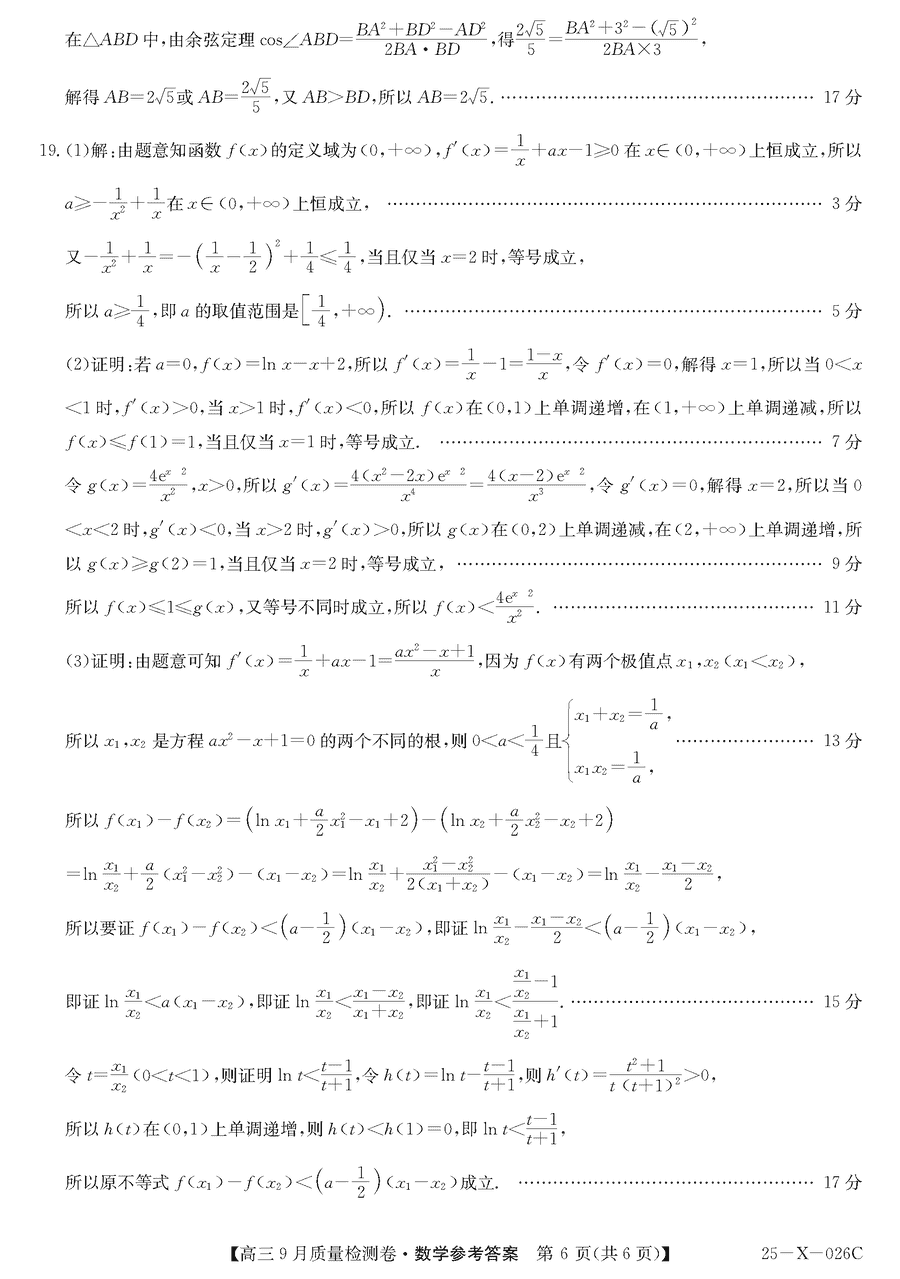 在△ABD 中,由余弦定理 cos∠ABD=\frac{BA²+BD²-AD²}{2BA·BD},得\frac{2√5}{5}=\frac{BA²+3²-(√5)²}{2BA×3},
解得 AB=2√5或 AB=\frac{2√5}{5},又 AB>BD,所以 AB=2√5. …… 17 分
19. (1)解:由题意知函数 f(x)的定义域为(0,+∞),f′(x)=\frac{1}{x}+ax-1≥0 在 x∈(0,+∞)上恒成立,所以
a≥-\frac{1}{x²}+\frac{1}{x}在 x∈(0,+∞)上恒成立, …… 3 分
又-\frac{1}{x²}+\frac{1}{x}=-(\frac{1}{x}-\frac{1}{2})²+\frac{1}{4}≤\frac{1}{4},当且仅当 x=2 时,等号成立,
所以 a≥\frac{1}{4},即 a 的取值范围是[\frac{1}{4},+∞). …… 5 分
(2)证明:若 a=0,f(x)=ln x-x+2,所以 f′(x)=\frac{1}{x}-1=\frac{1-x}{x},令 f′(x)=0,解得 x=1,所以当 0<x
<1 时,f′(x)>0,当 x>1 时,f′(x)<0,所以 f(x)在(0,1)上单调递增,在(1,+∞)上单调递减,所以
f(x)≤f(1)=1,当且仅当 x=1 时,等号成立. …… 7 分
令 g(x)=\frac{4e^{x 2}}{x²},x>0,所以 g′(x)=\frac{4(x²-2x)e^{x 2}}{x⁴}=\frac{4(x-2)e^{x 2}}{x³},令 g′(x)=0,解得 x=2,所以当 0
<x<2 时,g′(x)<0,当 x>2 时,g′(x)>0,所以 g(x)在(0,2)上单调递减,在(2,+∞)上单调递增,所
以 g(x)≥g(2)=1,当且仅当 x=2 时,等号成立, …… 9 分
所以 f(x)≤1≤g(x),又等号不同时成立,所以 f(x)<\frac{4e^{x 2}}{x²}. …… 11 分
(3)证明:由题意可知 f′(x)=\frac{1}{x}+ax-1=\frac{ax²-x+1}{x},因为 f(x)有两个极值点 x₁,x₂(x₁<x₂),
所以 x₁,x₂ 是方程 ax²-x+1=0 的两个不同的根,则 0<a<\frac{1}{4}且{x₁+x₂=\frac{1}{a}, x₁x₂=\frac{1}{a}, …… 13 分
所以 f(x₁)-f(x₂)=(ln x₁+\frac{a}{2}x₁²-x₁+2)-(ln x₂+\frac{a}{2}x₂²-x₂+2)
=ln \frac{x₁}{x₂}+\frac{a}{2}(x₁²-x₂²)-(x₁-x₂)=ln \frac{x₁}{x₂}+\frac{x₁²-x₂²}{2(x₁+x₂)}-(x₁-x₂)=ln \frac{x₁}{x₂}-\frac{x₁-x₂}{2},
所以要证 f(x₁)-f(x₂)<(a-\frac{1}{2})(x₁-x₂),即证 ln \frac{x₁}{x₂}-\frac{x₁-x₂}{2}<(a-\frac{1}{2})(x₁-x₂),
即证 ln \frac{x₁}{x₂}<a(x₁-x₂),即证 ln \frac{x₁}{x₂}<\frac{x₁-x₂}{x₁+x₂},即证 ln \frac{x₁}{x₂}<\frac{\frac{x₁}{x₂}-1}{\frac{x₁}{x₂}+1}. …… 15 分
令 t=\frac{x₁}{x₂}(0<t<1),则证明 ln t<\frac{t-1}{t+1},令 h(t)=ln t-\frac{t-1}{t+1},则 h′(t)=\frac{t²+1}{t(t+1)²}>0,
所以 h(t)在(0,1)上单调递增,则 h(t)<h(1)=0,即 ln t<\frac{t-1}{t+1},
所以原不等式 f(x₁)-f(x₂)<(a-\frac{1}{2})(x₁-x₂)成立. …… 17 分
【高三 9 月质量检测卷·数学参考答案 第 6 页(共 6 页)】 25-X-026C